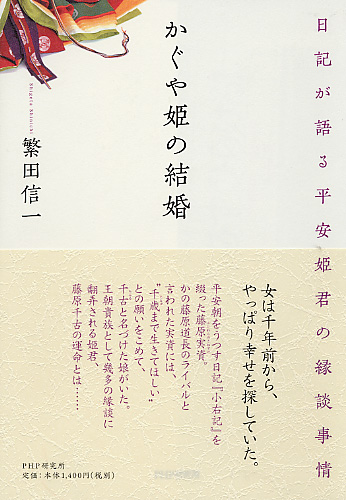 日記が語る平安姫君の縁談事情
かぐや姫の結婚
Shigeta Shinichi
繁田信一
女は千年前から、
やっぱり幸せを探していた。
平安朝をうつす日記『小右記』を
綴った藤原実資。
かの藤原道長のライバルと
言われた実資には、
“千歳まで生きてほしい”
との願いをこめて、
千古と名づけた娘がいた。
王朝貴族として幾多の縁談に
翻弄される姫君、
藤原千古の運命とは……
PHP研究所
定価:本体1,400円(税別)